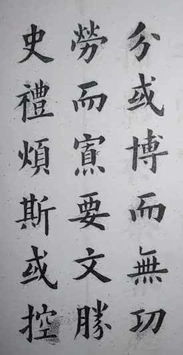 分或博而無功
勞而寡要文勝
史禮煩斯或控